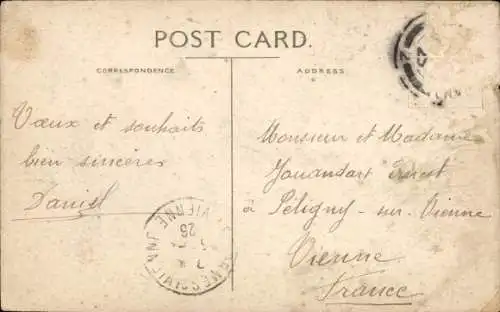 POST CARD.
CORRESPONDENCE
ADDRESS
Vœux et souhaits
bien sincères
Daniel
Monsieur et Madame
Jouandart Ernest
à Péligny-sur-Vienne
Vienne
France
VIENNE
26